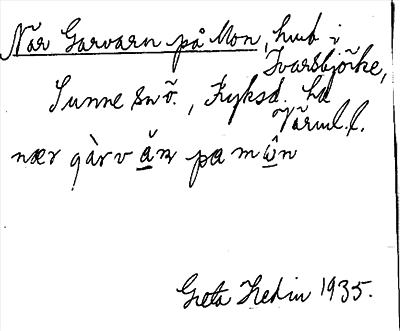 När Garvarn på Mon, hmd i
Ivarsbjörke,
Sunne sn ö., Fryksd. hd
Värml. l.
nær gàrv ä̀n pa m ω̂n
Greta Hedin 1935.